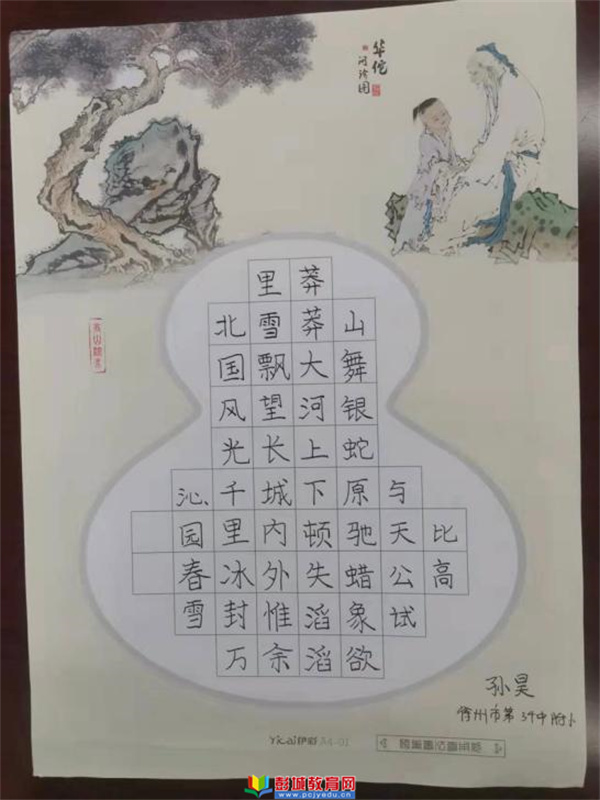 华佗
问诊图
沁园春雪
北国风光千里冰封万
里雪飘望长城内外惟余
莽莽大河上下顿失滔滔
山舞银蛇原驰蜡象欲
与天公试
比高
孙昊
徐州市第34中附小
Yicai伊彩 A4-01
彭城教育网
www.pcjyedu.cn